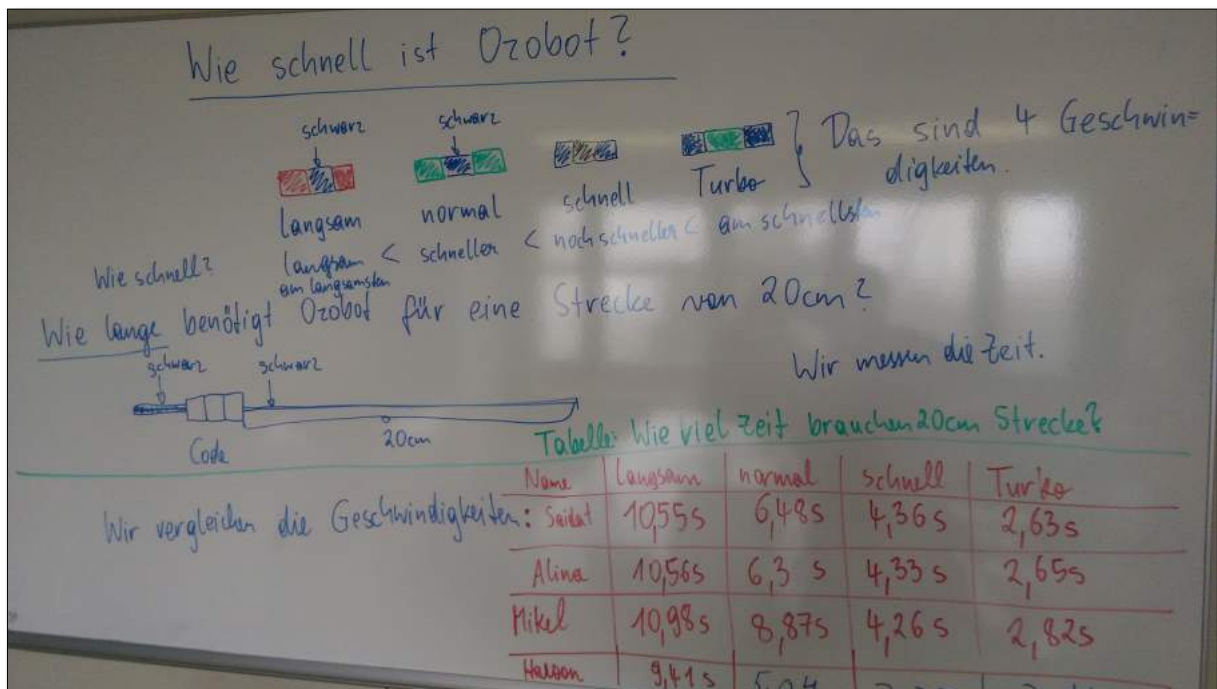 Wie schnell ist Ozobot?
schwarz schwarz
langsam normal schnell Turbo } Das sind 4 Geschwin=
digkeiten.
langsam < schneller < noch schneller < am schnellsten
am langsamsten
Wie schnell?
Wie lange benötigt Ozobot für eine Strecke von 20cm?
schwarz schwarz
Wir messen die Zeit.
Code 20cm
Tabelle: Wie viel Zeit brauchen 20cm Strecke?
Wir vergleichen die Geschwindigkeiten:
Name langsam normal schnell Turbo
Saidat 10,55s 6,48s 4,36s 2,63s
Alina 10,56s 6,3 s 4,33 s 2,65s
Mikel 10,98s 8,87s 4,26s 2,82s
9,41s